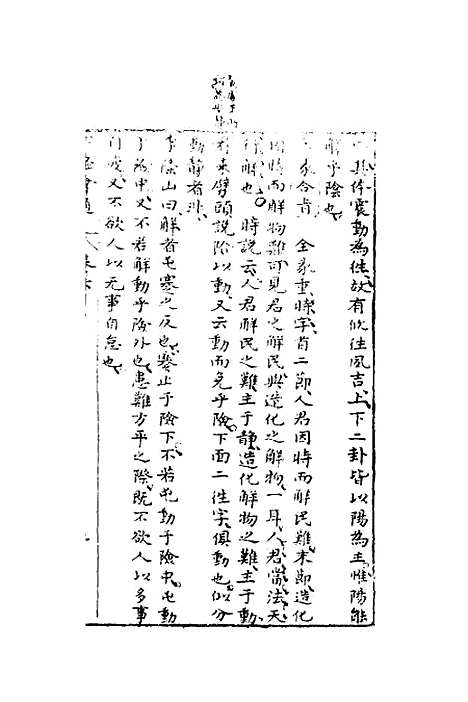 其体震動為往故有攸往夙吉上下二卦皆以陽為主惟陽能
解乎險也
彖合肯 全彖重時字首二節人君因時而解民難末節造化
因時而解物難可見君之解民與造化之解物一耳人君當法天
解也 時說云人君解民之難主于靜造化解物之難主于動
來劈頭說險以動又云動而免乎險下面二往字俱動也似分
動靜者非
李隆山曰解者屯蹇之反也蹇止于險下不若屯動于險中屯動
于險中又不若解動乎險外也患難方平之際既不欲人以多事
自疲又不欲人以无事自怠也
會通